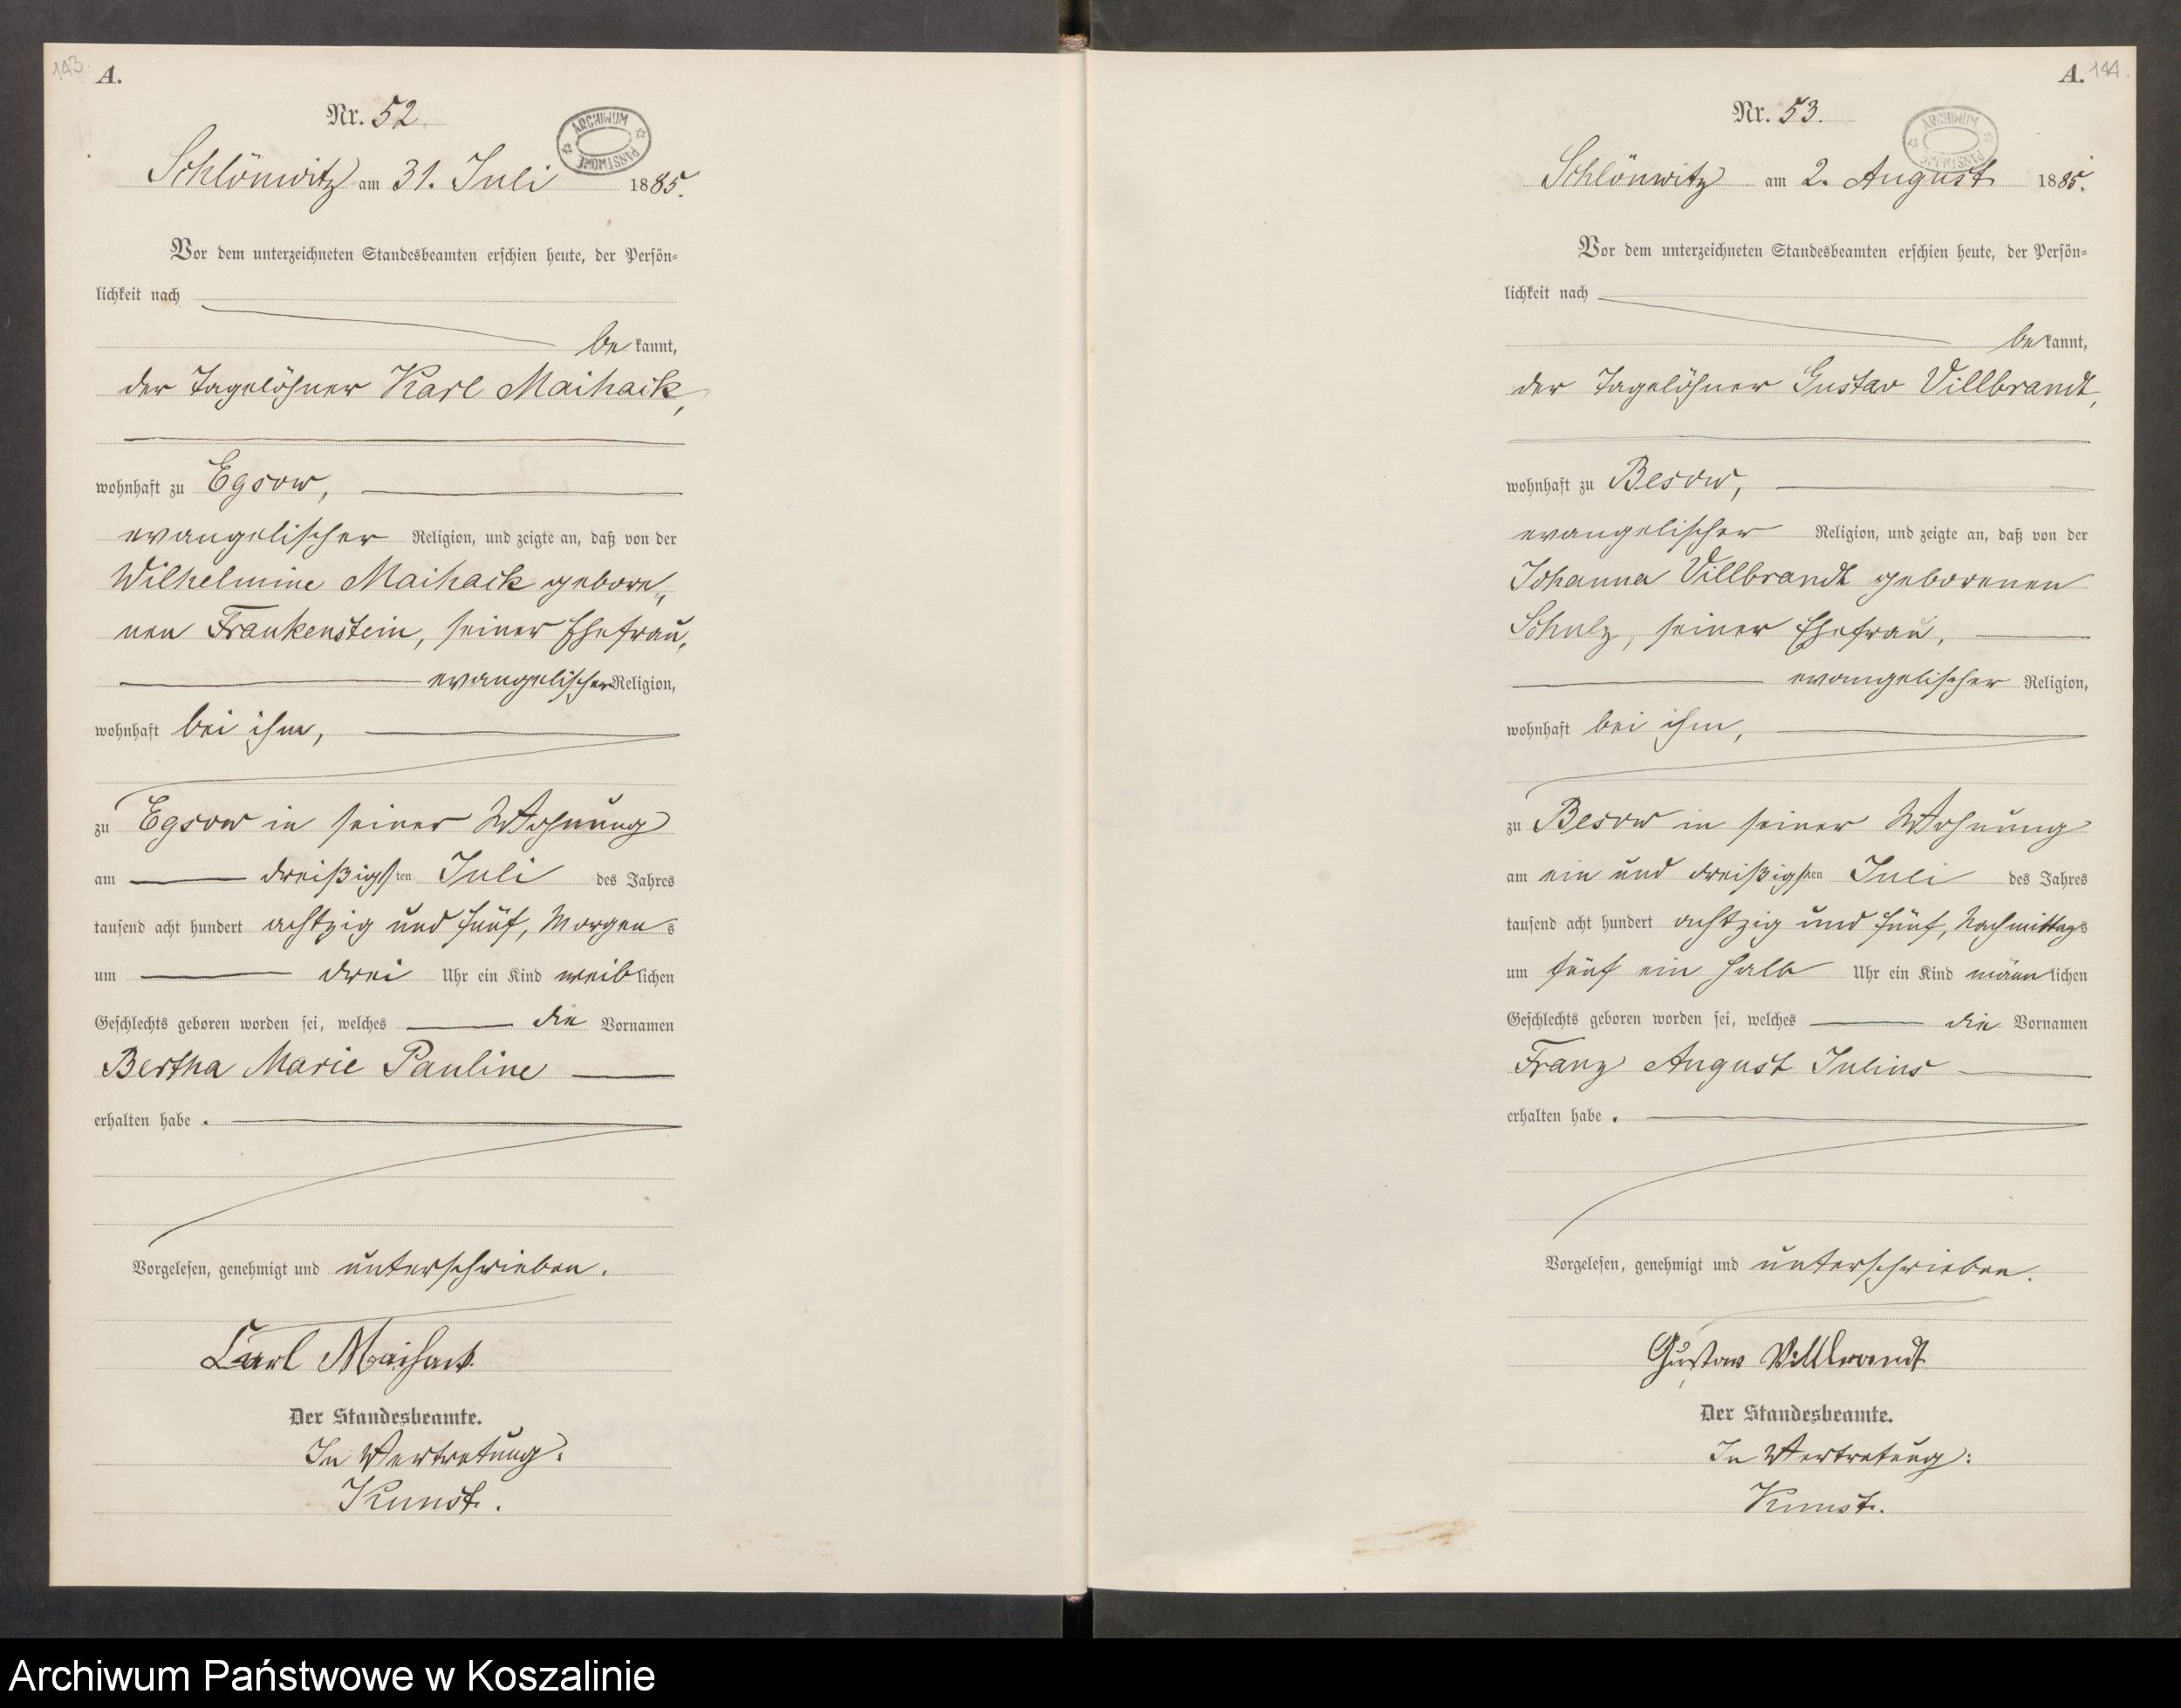 143.
A.
Nr. 52.
ARCHIWUM PAŃSTWOWE
Schlönwitz am 31. Juli 1885.
Vor dem unterzeichneten Standesbeamten erschien heute, der Persön=
lichkeit nach
bekannt,
der Tagelöhner Karl Maihack,
wohnhaft zu Egsow,
evangelischer Religion, und zeigte an, daß von der
Wilhelmine Maihack gebore„
nen Frankenstein, seiner Ehefrau,
evangelischer Religion,
wohnhaft bei ihm,
zu Egsow in seiner Wohnung
am dreißigsten Juli des Jahres
tausend acht hundert achtzig und fünf, Morgens
um drei Uhr ein Kind weiblichen
Geschlechts geboren worden sei, welches die Vornamen
Bertha Marie Pauline
erhalten habe.
Vorgelesen, genehmigt und unterschrieben.
Carl Maihack
Der Standesbeamte.
In Vertretung:
Kunst.
A. 144.
Nr. 53.
ARCHIWUM PAŃSTWOWE
Schlönwitz am 2. August 1885.
Vor dem unterzeichneten Standesbeamten erschien heute, der Persön=
lichkeit nach
bekannt,
der Tagelöhner Gustav Villbrandt,
wohnhaft zu Besow,
evangelischer Religion, und zeigte an, daß von der
Johanna Villbrandt geborenen
Schulz, seiner Ehefrau,
evangelischer Religion,
wohnhaft bei ihm,
zu Besow in seiner Wohnung
am ein und dreißigsten Juli des Jahres
tausend acht hundert achtzig und fünf, Nachmittags
um fünf ein halb Uhr ein Kind männlichen
Geschlechts geboren worden sei, welches die Vornamen
Franz August Julius
erhalten habe.
Vorgelesen, genehmigt und unterschrieben.
Gustav Villbrandt
Der Standesbeamte.
In Vertretung:
Kunst.
Archiwum Państwowe w Koszalinie